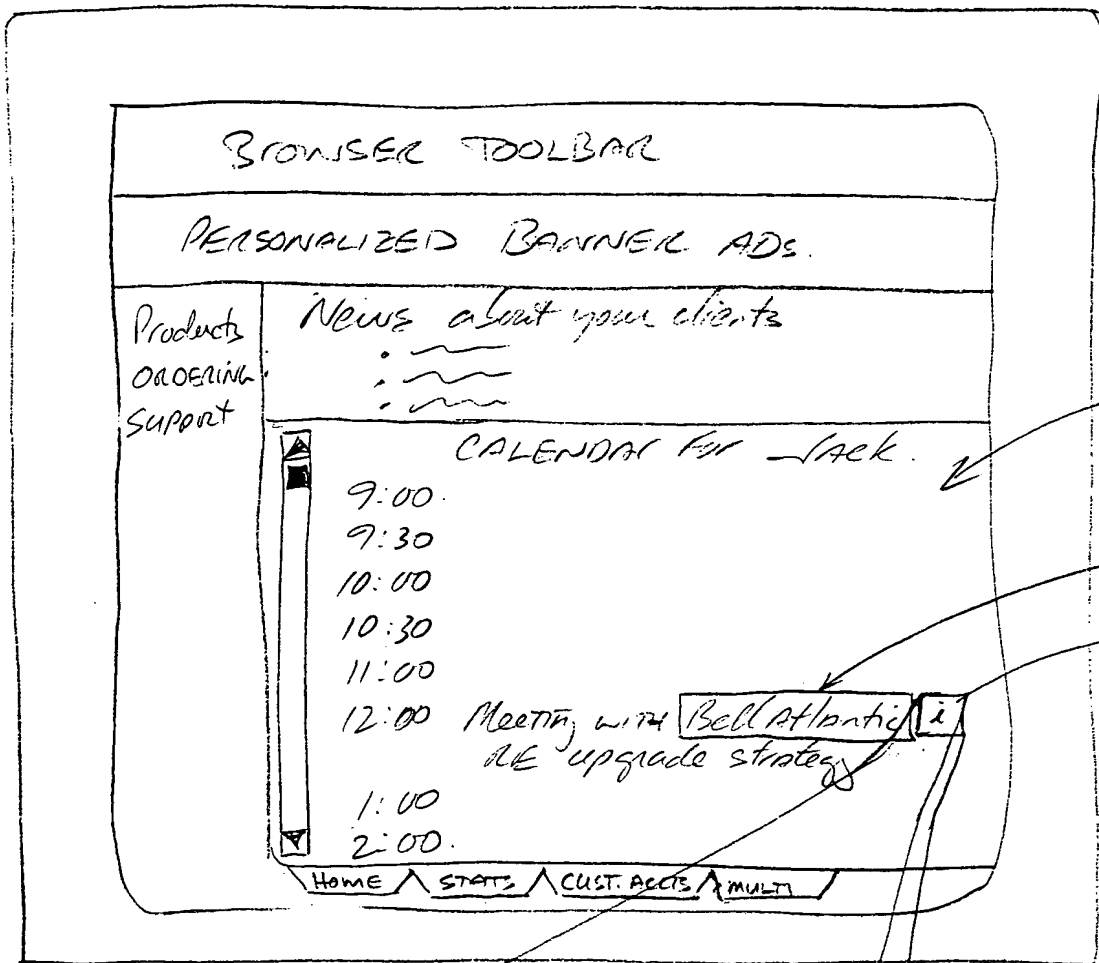 BROWSER TOOLBAR
PERSONALIZED BANNER ADs.
Products
ORDERING
Support
News about your clients
CALENDAR For Jack.
9:00
9:30
10:00
10:30
11:00
12:00 Meeting with Bell Atlantic i
RE upgrade strategy
1:00
2:00
HOME STATS CUST. ACCTS MULTI